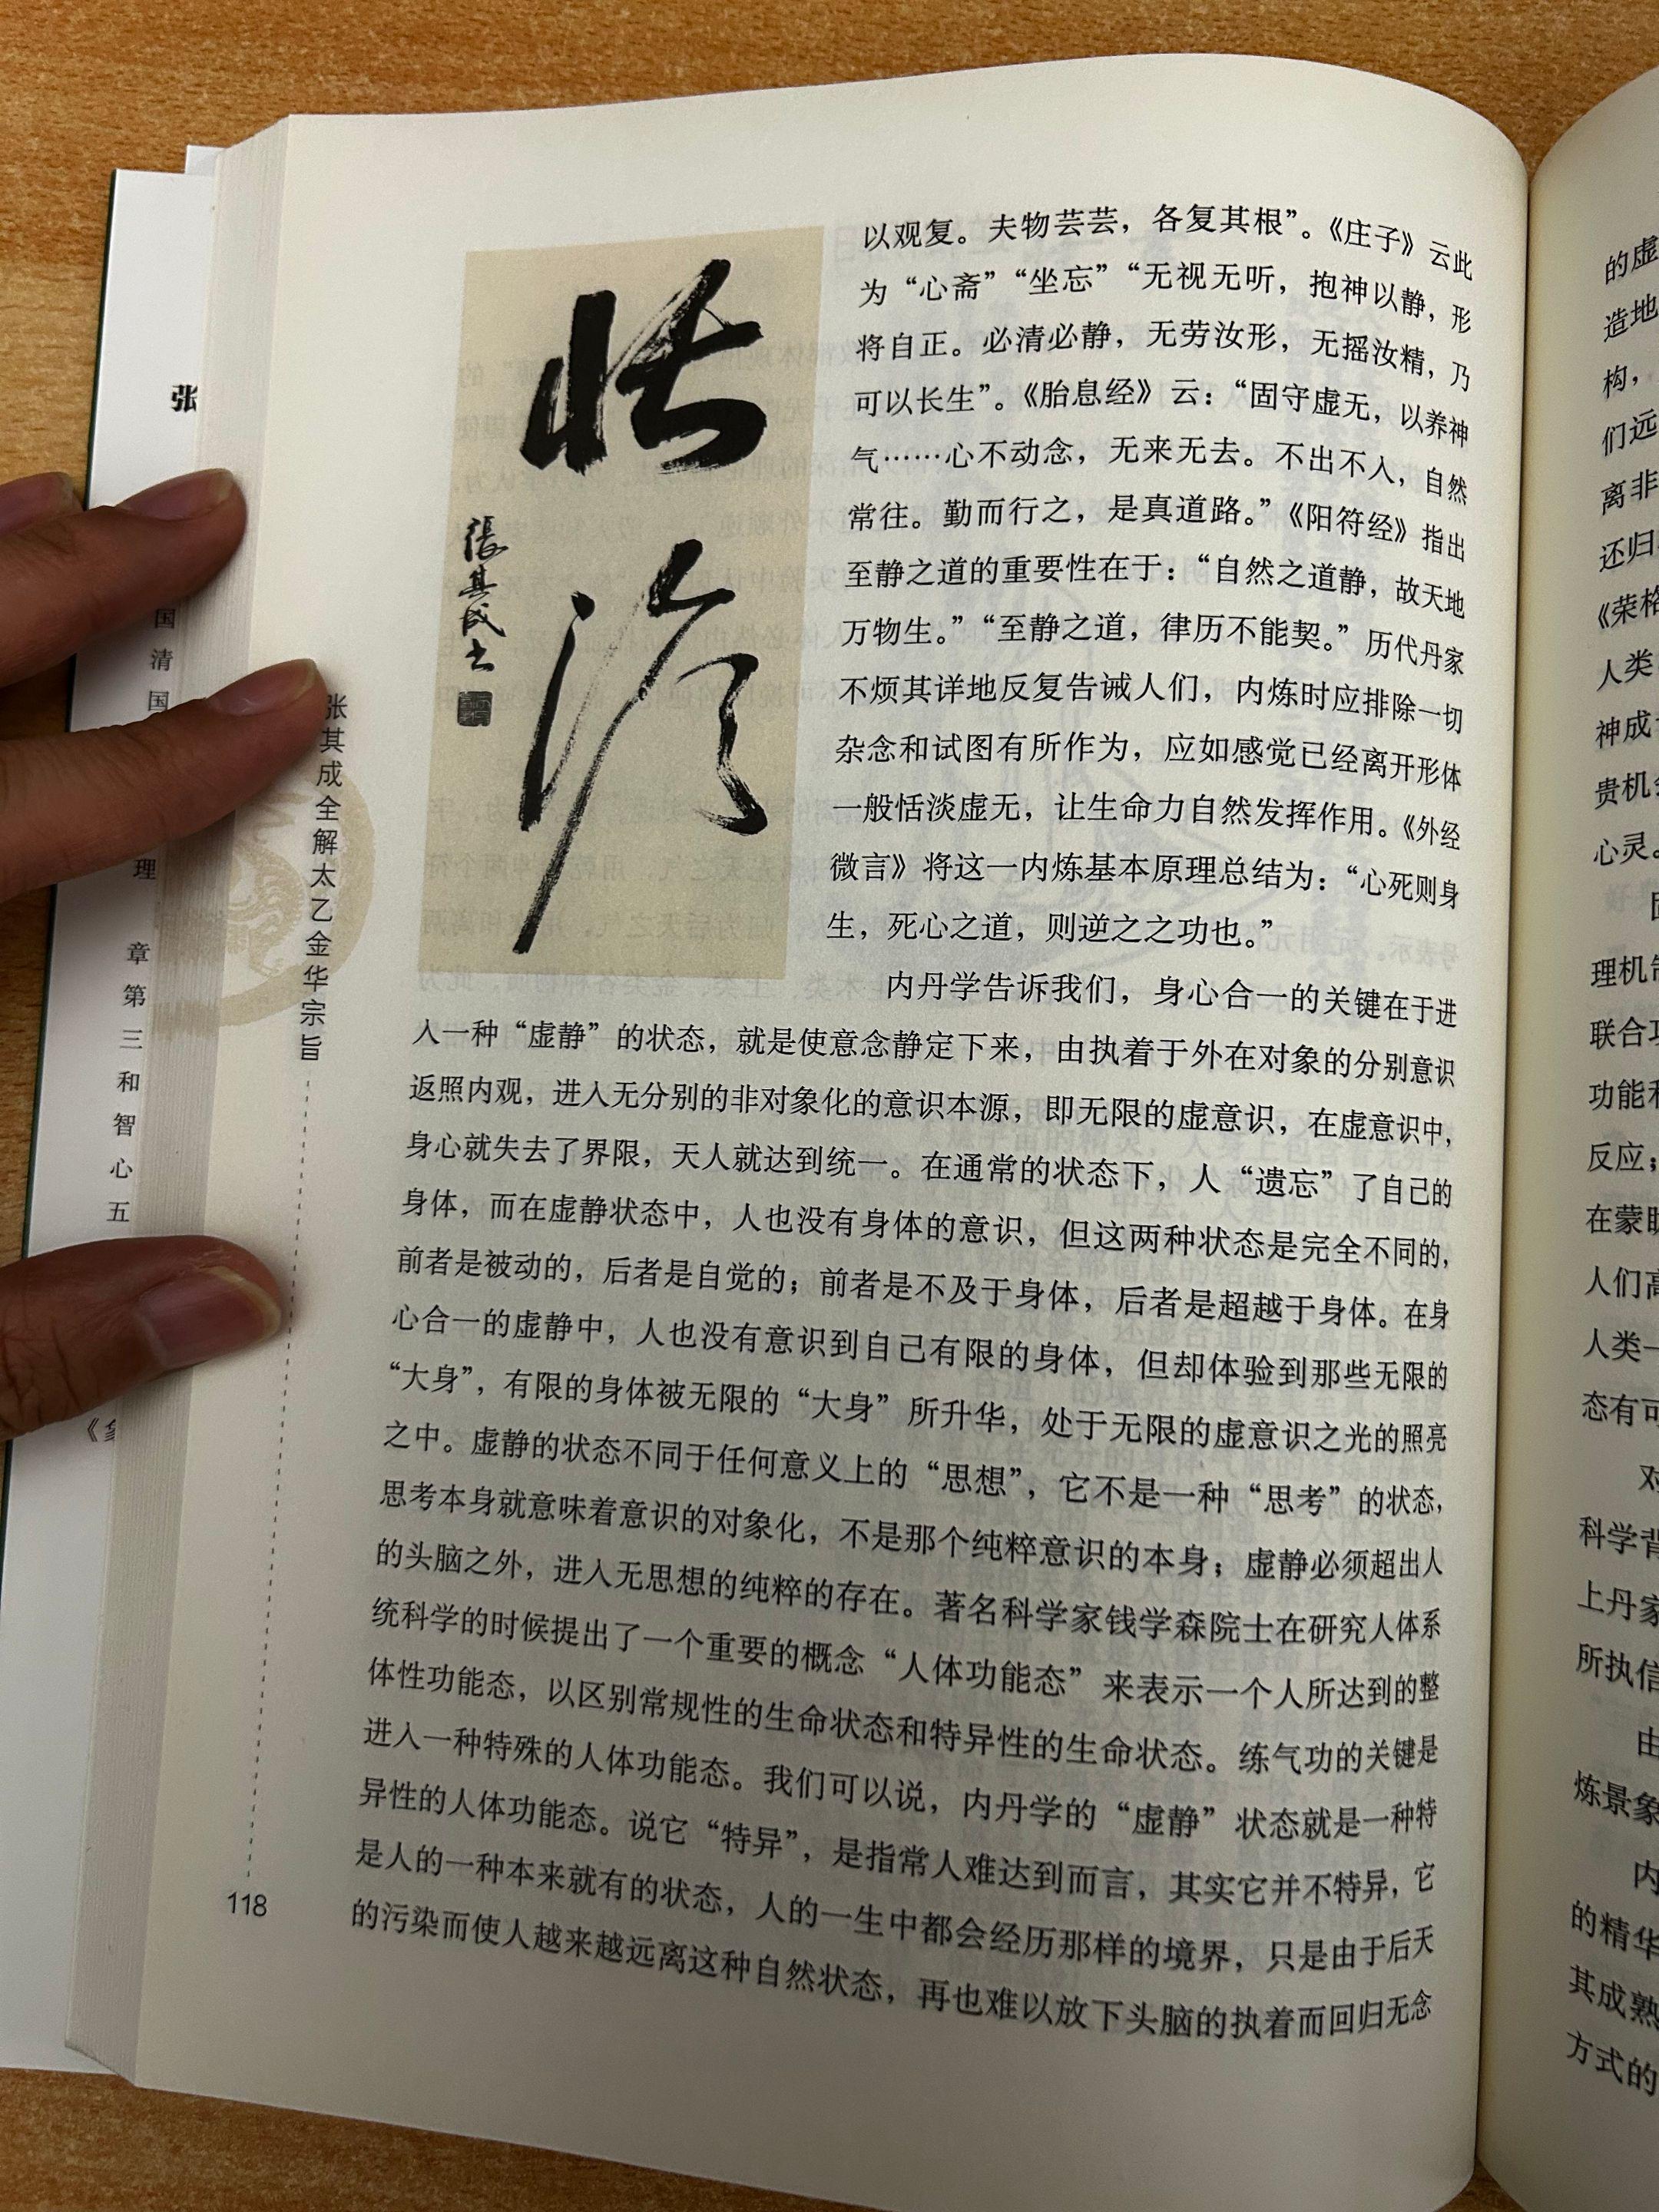 以观复。夫物芸芸，各复其根”。《庄子》云此
为“心斋”“坐忘”“无视无听，抱神以静，形
将自正。必清必静，无劳汝形，无摇汝精，乃
可以长生”。《胎息经》云：“固守虚无，以养神
气……心不动念，无来无去。不出不入，自然
常往。勤而行之，是真道路。”《阳符经》指出
至静之道的重要性在于：“自然之道静，故天地
万物生。”“至静之道，律历不能契。”历代丹家
不烦其详地反复告诫人们，内炼时应排除一切
杂念和试图有所作为，应如感觉已经离开形体
一般恬淡虚无，让生命力自然发挥作用。《外经
微言》将这一内炼基本原理总结为：“心死则身
生，死心之道，则逆之之功也。”
恬淡
張其成书
内丹学告诉我们，身心合一的关键在于进
入一种“虚静”的状态，就是使意念静定下来，由执着于外在对象的分别意识
返照内观，进入无分别的非对象化的意识本源，即无限的虚意识，在虚意识中，
身心就失去了界限，天人就达到统一。在通常的状态下，人“遗忘”了自己的
身体，而在虚静状态中，人也没有身体的意识，但这两种状态是完全不同的，
前者是被动的，后者是自觉的；前者是不及于身体，后者是超越于身体。在身
心合一的虚静中，人也没有意识到自己有限的身体，但却体验到那些无限的
“大身”，有限的身体被无限的“大身”所升华，处于无限的虚意识之光的照亮
之中。虚静的状态不同于任何意义上的“思想”，它不是一种“思考”的状态，
思考本身就意味着意识的对象化，不是那个纯粹意识的本身；虚静必须超出人
的头脑之外，进入无思想的纯粹的存在。著名科学家钱学森院士在研究人体系
统科学的时候提出了一个重要的概念“人体功能态”来表示一个人所达到的整
体性功能态，以区别常规性的生命状态和特异性的生命状态。练气功的关键是
进入一种特殊的人体功能态。我们可以说，内丹学的“虚静”状态就是一种特
异性的人体功能态。说它“特异”，是指常人难达到而言，其实它并不特异，它
是人的一种本来就有的状态，人的一生中都会经历那样的境界，只是由于后天
的污染而使人越来越远离这种自然状态，再也难以放下头脑的执着而回归无念
张其成全解太乙金华宗旨
118
张
国清国
理
章第三和智心五
的虚
造地
构，
们远
离非
还归
《荣格
人类
神成
贵机
心灵。
理机制
联合
功能和
反应；
在蒙
人们高
人类一
态有可
对
科学背
上丹家
所执信
由
炼景象
内
的精华
其成熟
方式的